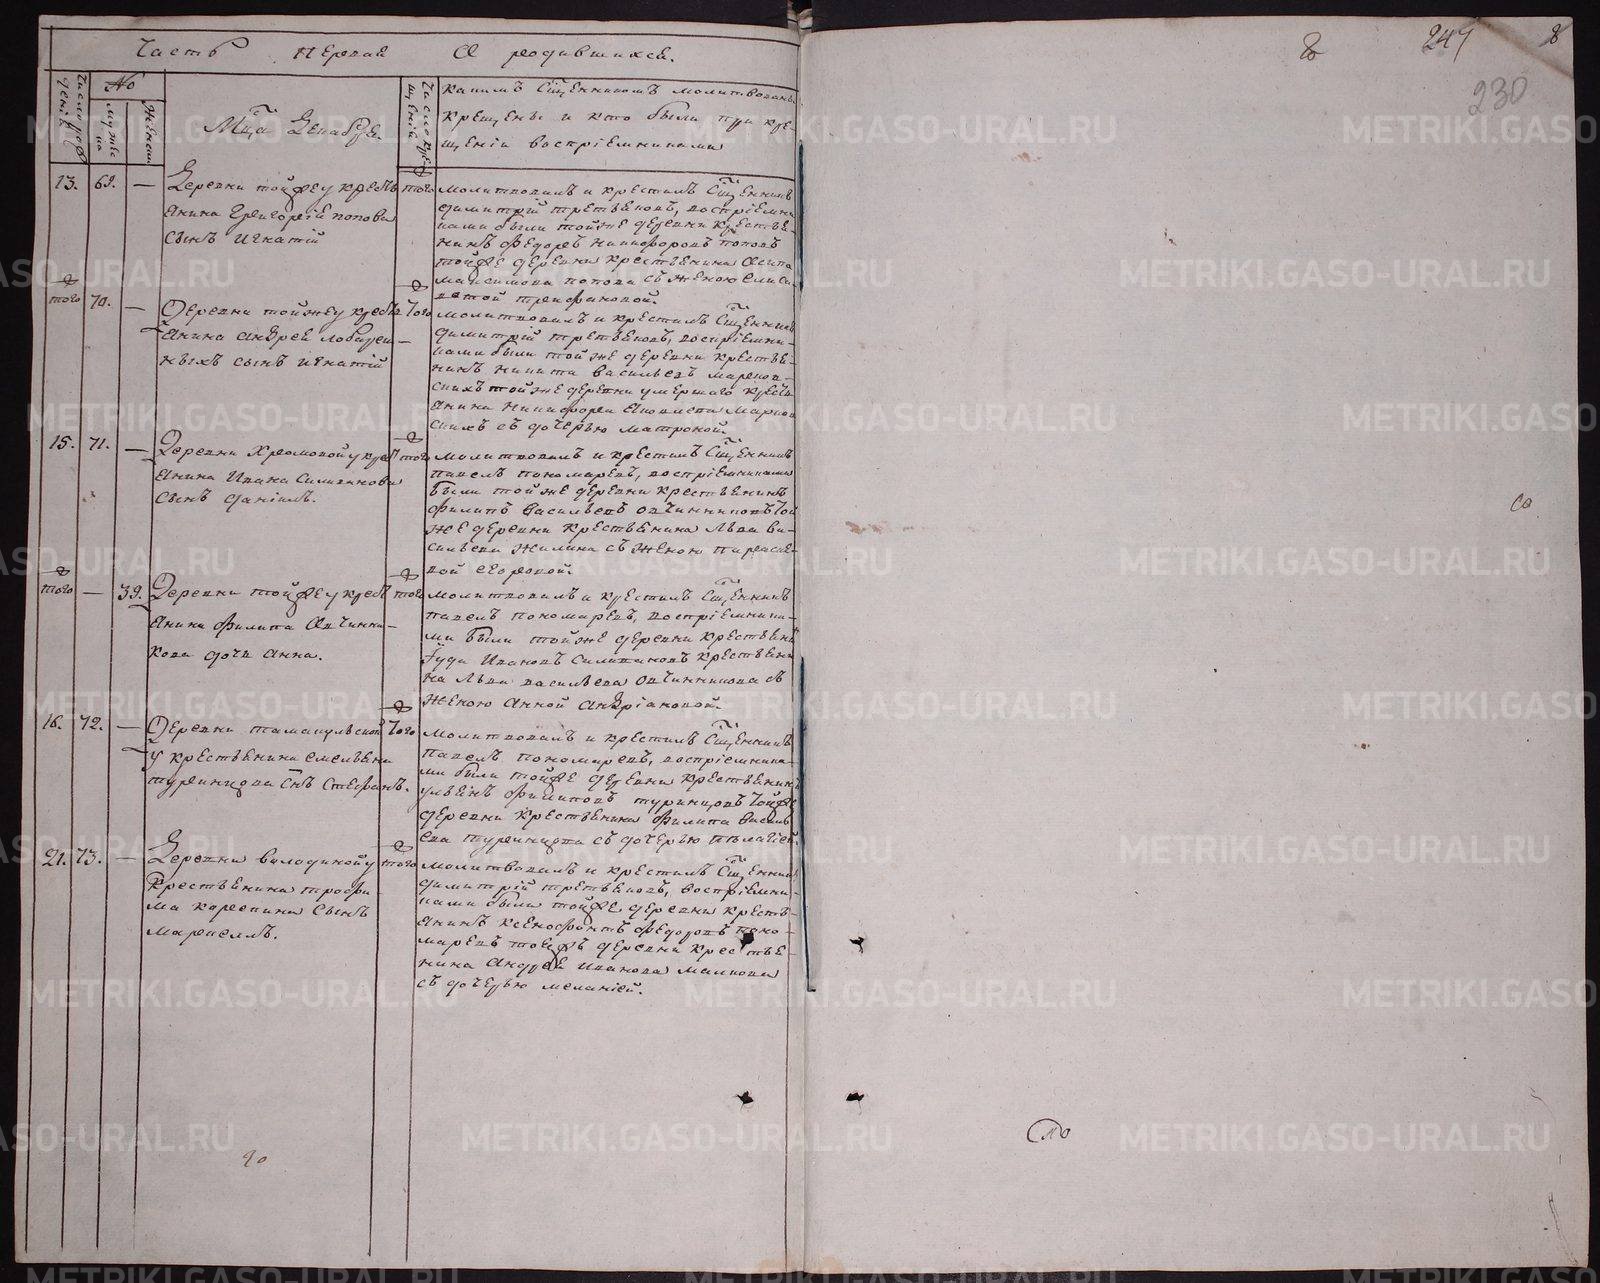 Часть первая О родившихся.
число рожденій
№
мужеска
женска
Мца Декабря
число крещенія
Какимъ Сщенникомъ молитвованы
крещены и кто были при кре-
щеніи воспріемниками
13. 69. —
Деревни тойже у кресть
янина Григорія попова
сынъ игнатій
того
молитвовалъ и крестилъ Сщенникъ
димитрій третьяковъ, воспріемни
ками были тойже деревни крестья
нинъ федоръ никифоровъ поповъ
тойже деревни крестьянина Осипа
максимова попова съ женою елиса
ветой трифановой.
того 70. —
Деревни тойже у кресть
янина андрея
ныхъ сынъ игнатій
того
молитвовалъ и крестилъ Сщенникъ
димитрій третьяковъ, воспріемни-
ками были тойже деревни крестья
нинъ никита васильевъ
тойже деревни умершаго кресть
янина никифора
съ дочерью матроной.
15. 71. —
Деревни у кресть
янина Ивана Силиванова
сынъ даніилъ.
того
молитвовалъ и крестилъ Сщенникъ
павелъ пономаревъ, воспріемниками
были тойже деревни крестьянинъ
филипъ васильевъ овчинниковъ той
же деревни крестьянина Льва ва-
сильева жилина съ женою параске-
вой егоровой.
того — 39.
Деревни тойже у кресть
янина филипа Овчинни-
кова дочь анна.
того
молитвовалъ и крестилъ Сщенникъ
павелъ пономаревъ, воспріемника-
ми были тойже деревни крестьяни
Іуда Ивановъ Силивановъ крестьяни
на Льва васильева овчинникова съ
женою анной андріановой.
16. 72. —
Деревни тамакульской
у крестьянина емельяна
туринцова Снъ Стефанъ.
того
молитвовалъ и крестилъ Сщенникъ
павелъ пономаревъ, воспріемника-
ми были тойже деревни крестьянин
ульянъ филиповъ туринцовъ тойже
деревни крестьянина филипа василь
ева туринцова съ дочерью пелагіей.
21. 73. —
Деревни у
крестьянина трофи-
ма карепина сынъ
маркеллъ.
того
молитвовалъ и крестилъ Сщенникъ
димитрій третьяковъ, воспріемни-
ками были тойже деревни кресть-
янинъ Ксенофонтъ федоровъ поно-
маревъ тоежъ деревни крестья
нина Андрея Иванова малкова
съ дочерью меланіей.
247
230
METRIKI.GASO-URAL.RU